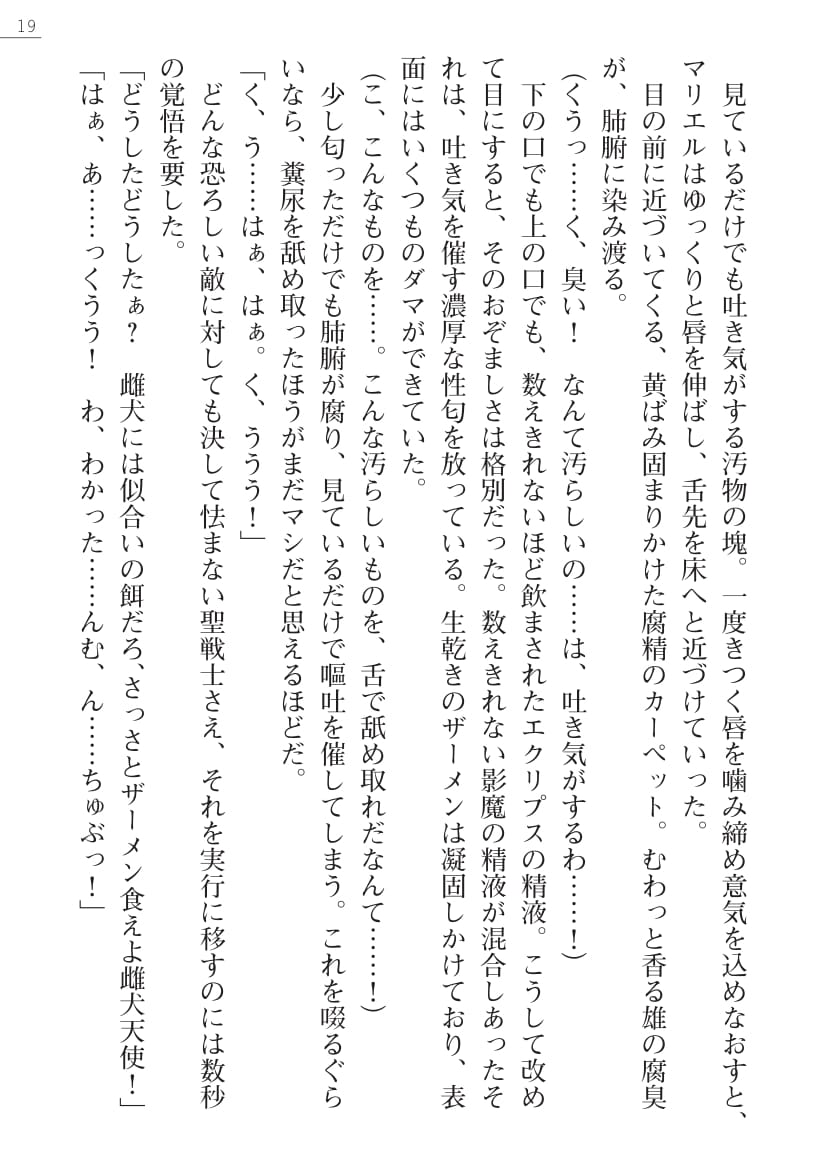 19
見ているだけでも吐き気がする汚物の塊。一度きつく唇を噛み締め意気を込めなおすと、
マリエルはゆっくりと唇を伸ばし、舌先を床へと近づけていった。
目の前に近づいてくる、黄ばみ固まりかけた腐精のカーペット。むわっと香る雄の腐臭
が、肺腑に染み渡る。
(くうっ……く、臭い！　なんて汚らしいの……は、吐き気がするわ……！)
下の口でも上の口でも、数えきれないほど飲まされたエクリプスの精液。こうして改め
て目にすると、そのおぞましさは格別だった。数えきれない影魔の精液が混合しあったそ
れは、吐き気を催す濃厚な性匂を放っている。生乾きのザーメンは凝固しかけており、表
面にはいくつものダマができていた。
(こ、こんなものを……。こんな汚らしいものを、舌で舐め取れだなんて……！)
少し匂っただけでも肺腑が腐り、見ているだけで嘔吐を催してしまう。これを啜るぐら
いなら、糞尿を舐め取ったほうがまだマシだと思えるほどだ。
「く、う……はぁ、はぁ。く、ううう！」
どんな恐ろしい敵に対しても決して怯まない聖戦士さえ、それを実行に移すのには数秒
の覚悟を要した。
「どうしたどうしたぁ？　雌犬には似合いの餌だろ、さっさとザーメン食えよ雌犬天使！」
「はぁ、あ……っくうう！　わ、わかった……んむ、ん……ちゅぶっ！」